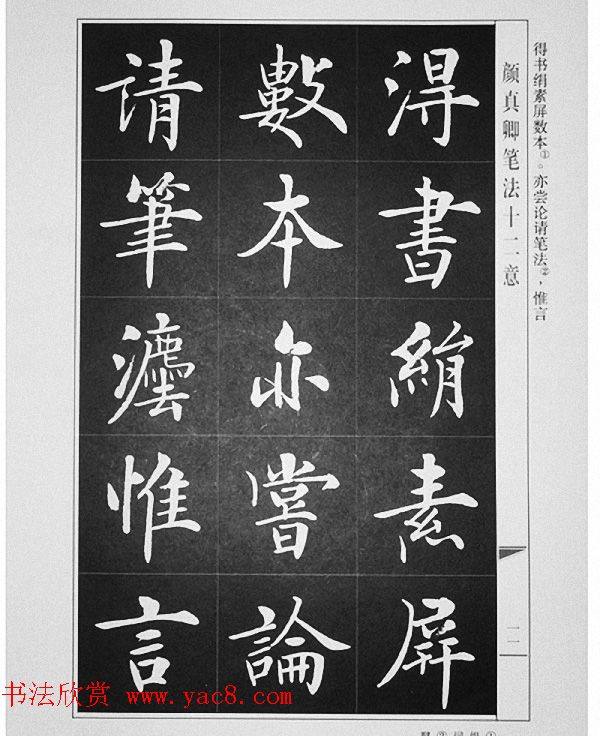 得書絹素屏
數本亦嘗論
请筆灋惟言
颜真卿笔法十二意
二
得书绢素屏数本①。亦尝论请笔法②，惟言
书法欣赏 www.yac8.com